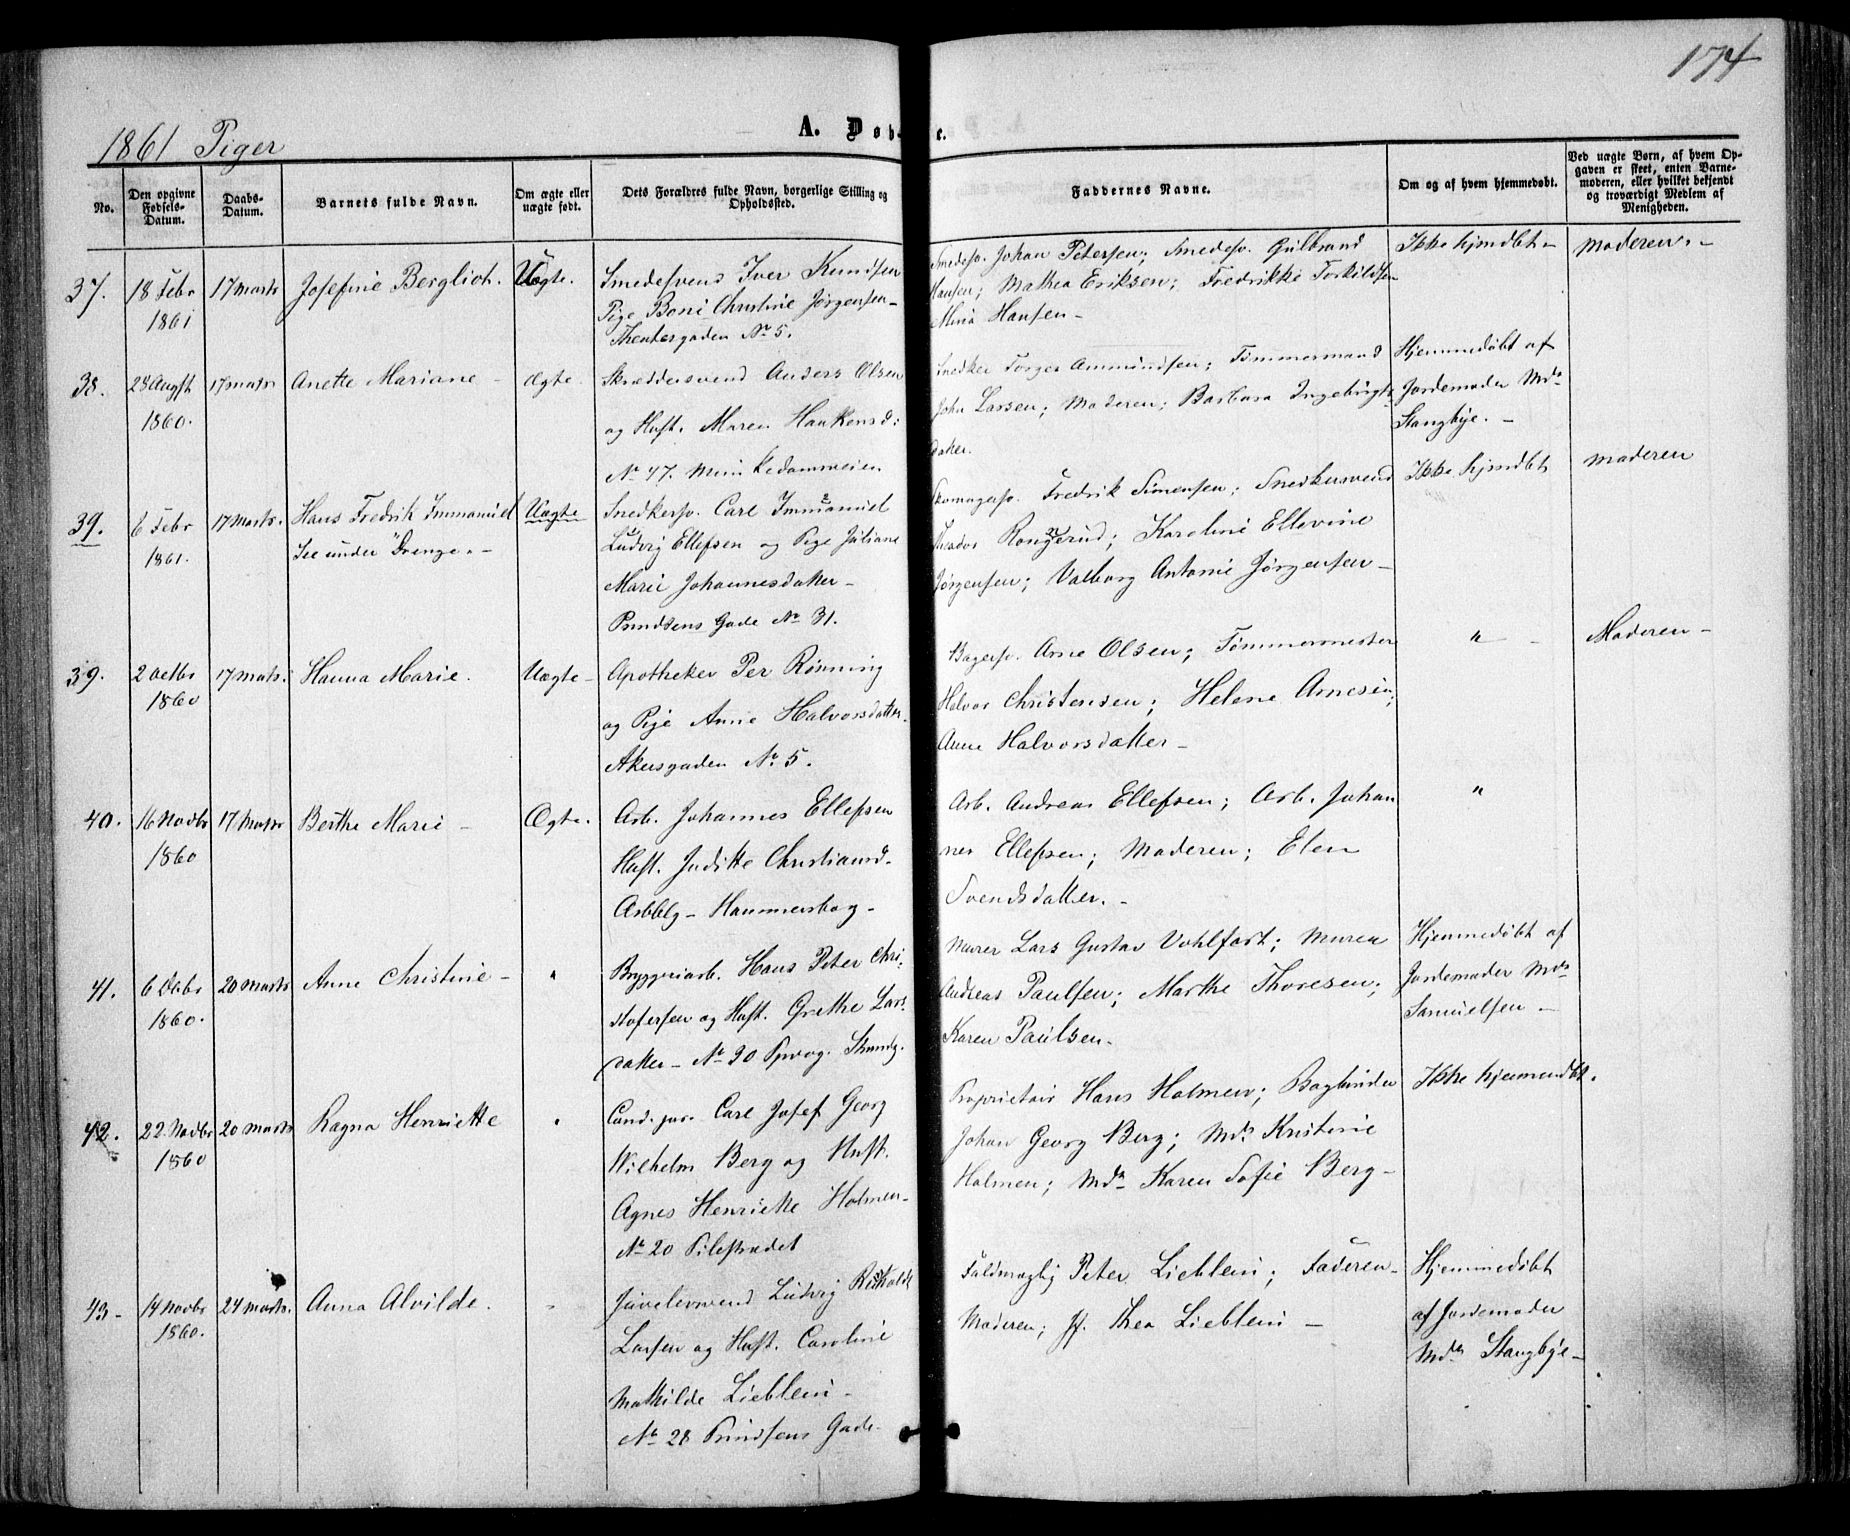 174
1861 Piger
A. Døbte.
No.
Den opgivne Fødsels-Datum.
Daabs-Datum.
Barnets fulde Navn.
Om ægte eller uægte født.
Dets Forældres fulde Navn, borgerlige Stilling og Opholdssted.
Faddernes Navne.
Om og af hvem hjemmedøbt.
Ved uægte Børn, af hvem Opgaven er skeet, enten Barnemoderen, eller hvilket bekjendt og troværdigt Medlem af Menigheden.
37. 18 Febr 17 Marts Josefine Bergliot. Uægte. Smedesvend Iver Knudsen
1861 Pige Boni Christine Jørgensen-
Theatergaden No 5.
Smedesv. Johan Petersen; Smedesv. Gulbrand
Hansen; Mathea Eriksen; Fredrikke Torkildsen
Mina Hansen-
Ikke hjmdbt- Moderen.-
38. 28 Augst 17 Marts Anette Mariane- Ægte. Skreddersvend Anders Olsen
1860. og Hust. Maren Haakensd:
No 47.
Snedker Torger Ammundsen; Tømmermand
John Larsen; Moderen; Barbara Ingebrigts
datter.
Hjemmedøbt af
Jordemoder Mde
Stangbye.-
39. 6 Febr 17 Marts. Hans Fredrik Immanuel Uægte Snedkersv. Carl Immanuel
1861. See under "Drenge"- Ludvig Ellefsen og Pige Juliane
Marie Johannesdatter-
Prindsens Gade No 31.
Skomagersv. Fredrik Simensen; Snedkersvend
Theodor Rongerud; Karoline Ellevine
Jørgensen; Valborg Antonie Jørgensen-
Ikke hjmdbt Moderen
39. 2 Octbr 17 Marts. Hanna Marie. Uægte- Apotheker Per Rønning
1860 og Pige Anne Halvorsdatter.
Akersgaden No 5.
Bagersv. Arne Olsen; Tømmermester
Halvor Christensen; Helene Arnesen;
Anne Halvorsdatter-
" - Moderen-
40. 16 Novbr 17 Marts Berthe Marie- Ægte. Arb. Johannes Ellefsen
1860 Hust. Juditte Christiansd.
Arbblg- Hammersborg-
Arb. Andreas Ellefsen; Arb. Johan
nes Ellefsen; Moderen; Elen
Svendsdatter.-
"
41. 6 Decbr 20 Marts Anne Christine- " Bryggeriarb. Hans Peter Chri-
1860. stofersen og Hust. Grethe Lars
datter- No 20
Murer Lars Gustav Vohlfart; Murer
Andreas Paulsen; Marthe Thoresen;
Karen Paulsen.
Hjemmedøbt af
Jordemoder Mde
Samuelsen-
42. 22 Novbr 20 Marts Ragna Henriette " Cand. jur. Carl Josef Georg
1860 Wilhelm Berg og Hust.
Agnes Henriette Holmen-
No 20 Pilestrædet
Proprietair Hans Holmen; Bogbinder
Johan Georg Berg; Mde Kristine
Holmen; Mde Karen Sofie Berg-
Ikke hjemmdbt.
43- 14 Novbr 24 Marts. Anna Alvilde. " Juvelersvend Ludvig
1860. Larsen og Hust. Caroline
Mathilde Lieblein-
No 28 Prindsens Gade-
Fuldmægtig Peter Lieblein; Faderen-
Moderen; Jf. Thea Lieblein-
Hjemmedøbt
af Jordemoder
Mde Stangbye-